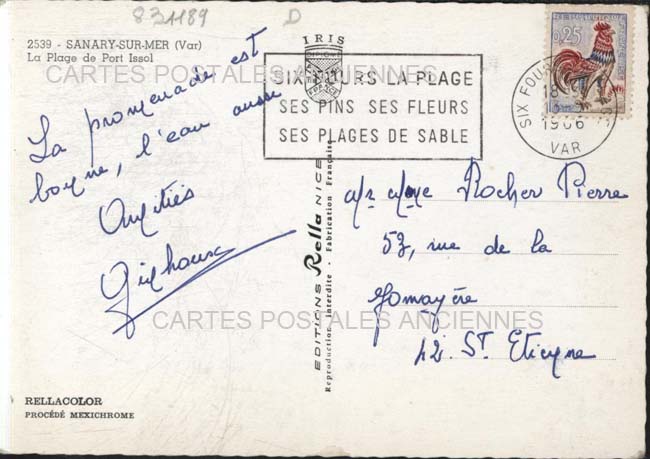 831189 D
2539 - SANARY-SUR-MER (Var)
La Plage de Port Issol
CARTES POSTALES ANCIENNES
La promenade est
bonne, l'eau aussi
Amitiés
IRIS
SIX-FOURS LA PLAGE
SES PINS SES FLEURS
SES PLAGES DE SABLE
0,25
SIX FOU
18
1966
VAR
EDITIONS Rella NICE
Reproduction interdite - Fabrication Française
Mr Mme Rocher Pierre
53, rue de la
Jomayère
42. St Etienne
CARTES POSTALES ANCIENNES
RELLACOLOR
PROCÉDÉ MEXICHROME